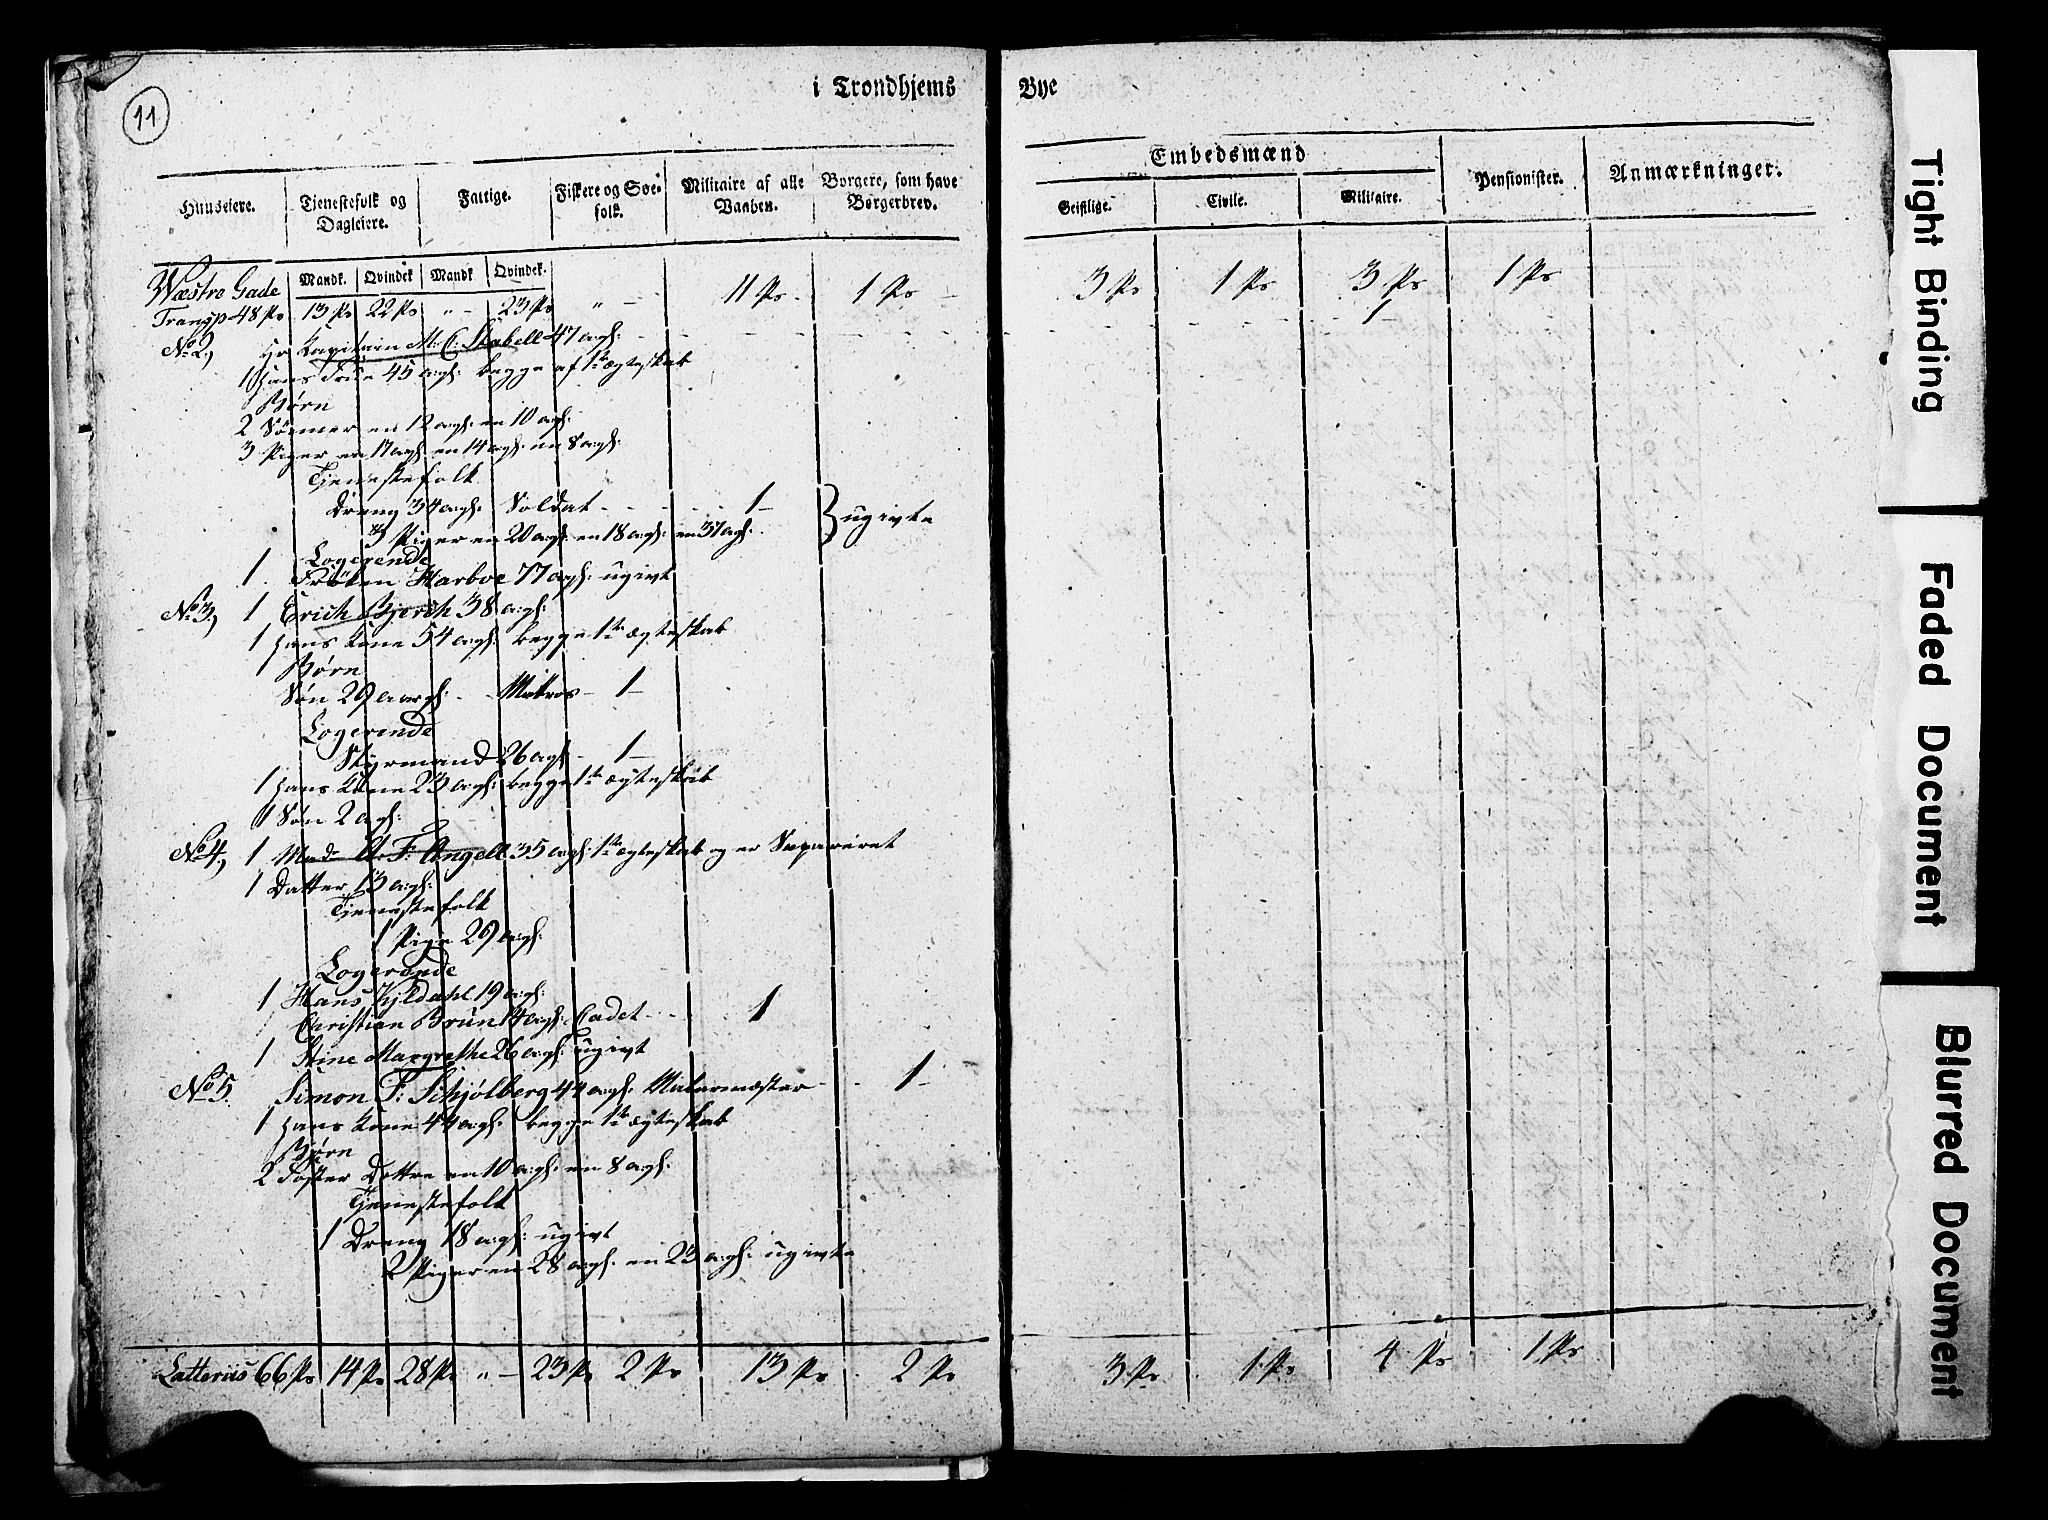 11
i Trondhjems Bye
Huuseiere.
Tjenestefolk og Dagleiere.
Fattige.
Fiskere og Søefolk.
Militaire af alle Vaaben.
Borgere, som have Borgerbrev.
Embedsmænd
Geistlige.
Civile.
Militaire.
Pensionister.
Anmærkninger.
Mandk. Qvindek Mandk Qvindek.
Wæstre Gade
Transp 48 Ps 13 Ps 22 Ps " - 23 Ps " - 11 Ps 1 Ps 3 Ps 1 Ps 3 Ps 1 Ps
No 2, Hr Kapitain M: C: Stabell 47 agl: 1
1 Hans Frue 45 agl: begge af 1te ægteskab
Børn
2 Sønner en 12 agl: en 10 agl:
3 Piger en 17 agl: en 14 agl: en 8 agl:
Tjenestefolk
Dreng 34 agl: Soldat 1
3 Piger en 20 agl: en 18 agl: en 37 agl: } ugivte
Logerende
1 Frøken Harboe 77 agl: ugivt
No 3, 1 Erich Bjerch 38 agl:
1 Hans Kone 54 agl: begge 1te ægteskab
1 Børn
Søn 29 aargl: Matros 1
Logerende
Styrmand 26 agl: 1
1 Hans Kone 23 agl: begge 1te ægteskab
1 Søn 2 agl:
No 4, 1 Mad: A: F: Angell 35 agl: 1te ægteskab og er Separeret
1 Datter 13 agl:
Tjenestefolk
1 Pige 29 agl:
Logerende
1 Hans Kjldahl 19 agl:
Christian Brun 14 agl: Cadet 1
1 Stine Margrethe 26 agl: ugivt
No 5. Simon F: Schjølberg 44 agl: Malermæster 1
1 Hans Kone 44 agl: begge 1te ægteskab
Børn
2 Foster Døttre en 10 agl: en 8 agl:
Tjenestefolk
1 Dreng 18 agl: ugivt
2 Piger en 28 agl: en 23 agl: ugivte
Latteriis 66 Ps 14 Ps 28 Ps " - 23 Ps 2 Ps 13 Ps 2 Ps 3 Ps 1 Ps 4 Ps 1 Ps
Tight Binding
Faded Document
Blurred Document